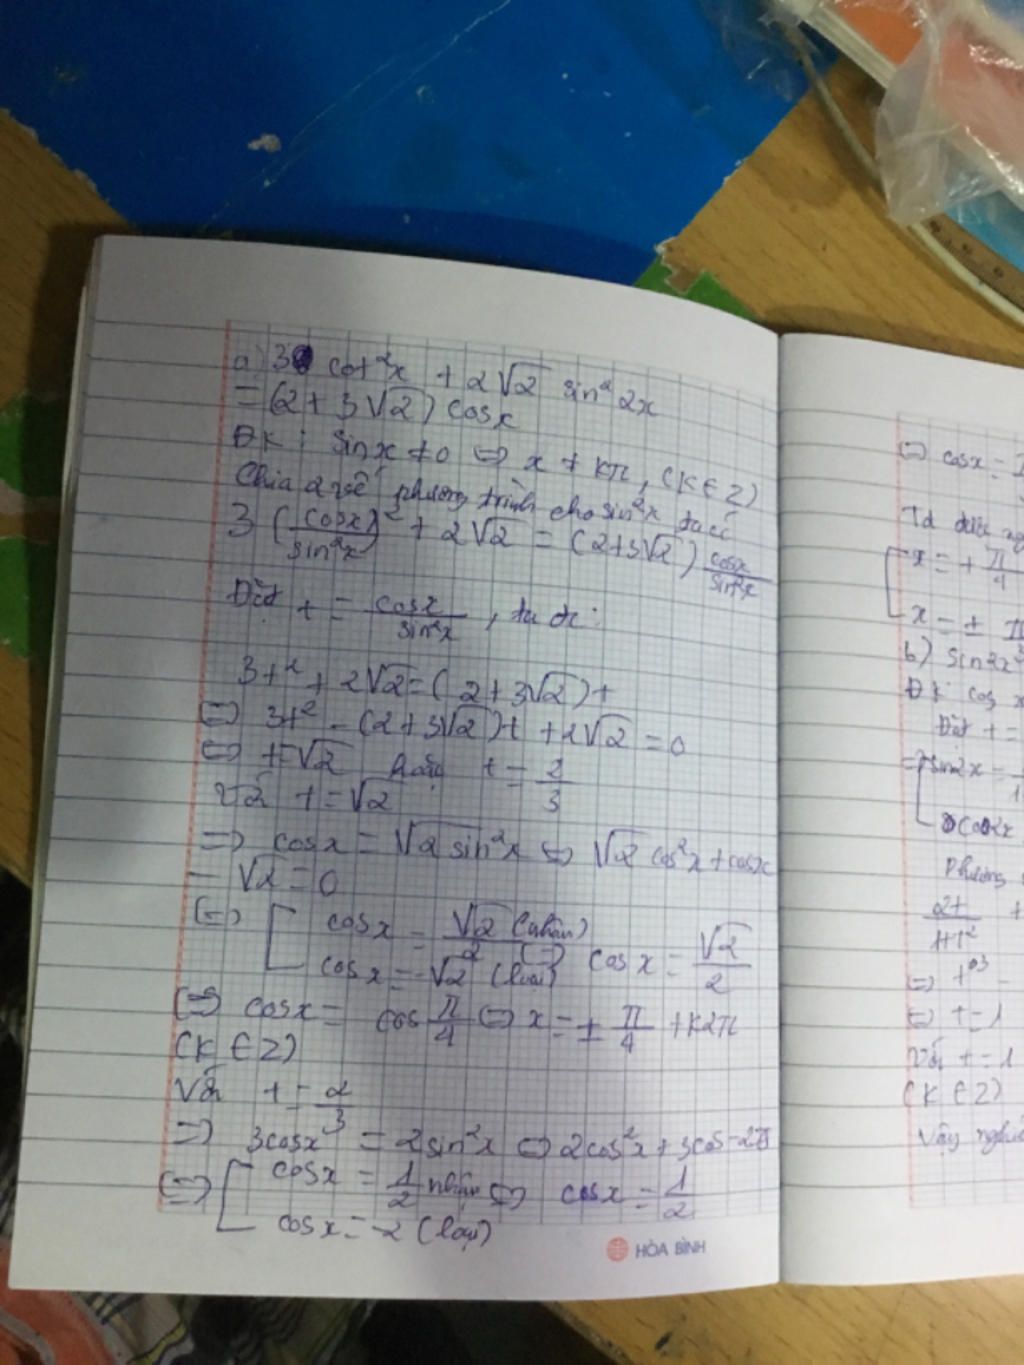 a) 3 cot²x + 2√2 sin²2x
= (2 + 3√2) cosx
ĐK: sinx ≠ 0 ⇔ x ≠ kπ, (K ∈ Z)
Chia 2 vế phương trình cho sin²x ta có
3 (cosx/sin²x)² + 2√2 = (2+3√2) cosx/sin²x
Đặt t = cosx/sin²x, ta đc:
3t² + 2√2 = (2 + 3√2)t
⇔ 3t² - (2+3√2)t + 2√2 = 0
⇔ t=√2 hoặc t = 2/3
Với t = √2
⇒ cosx = √2 sin²x ⇔ √2 cos²x + cosx
- √2 = 0
⇔ [ cosx = √2/2 (nhận)
cosx = -√2 (loại) ⇔ cosx = √2/2
⇔ cosx = cos π/4 ⇔ x = ± π/4 + k2π
(K ∈ Z)
Với t = 2/3
⇒ 3cosx = 2sin²x ⇔ 2cos²x + 3cos-2
⇔ [ cosx = 1/2 nhận ⇔ cosx = 1/2
cosx = -2 (loại)
HÒA BÌNH
⇔ cosx =
Ta được
[ x = + π/4
x = ±
b) sin2x
ĐK cos x
Đặt t =
sin2x =
cos2x
Phương
2t/1+t² +
⇔ t³ -
⇔ t=1
Với t = 1
(K ∈ Z)
Vậy